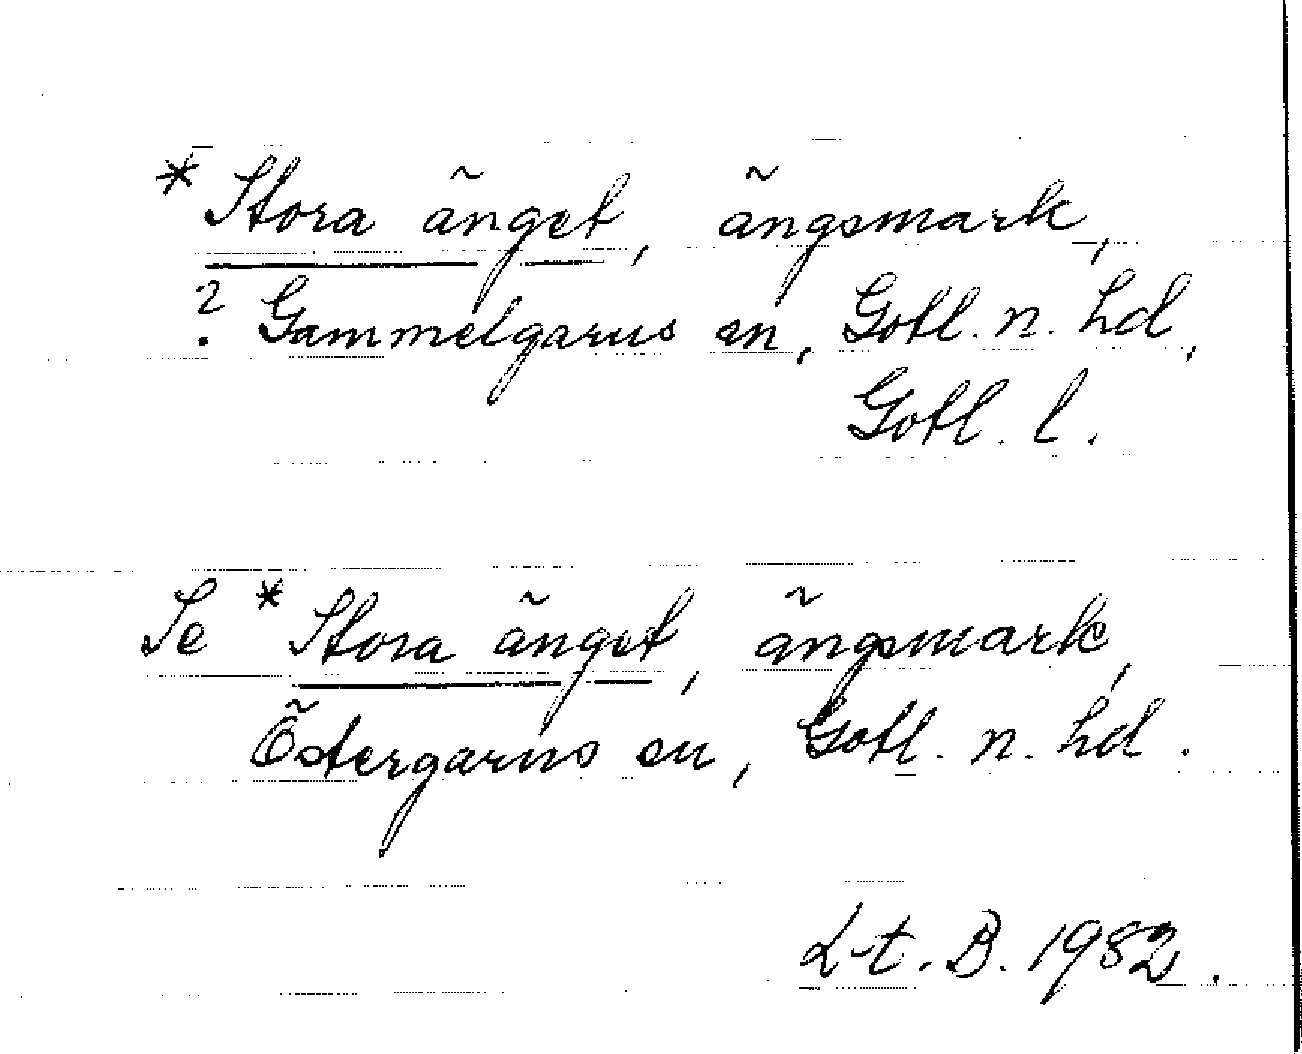 * Stora änget, ängsmark,
? Gammelgarns sn, Gotl. n. hd,
Gotl. l.
Se * Stora änget, ängsmark,
Östergarns sn, Gotl. n. hd.
L-t. B. 1982.